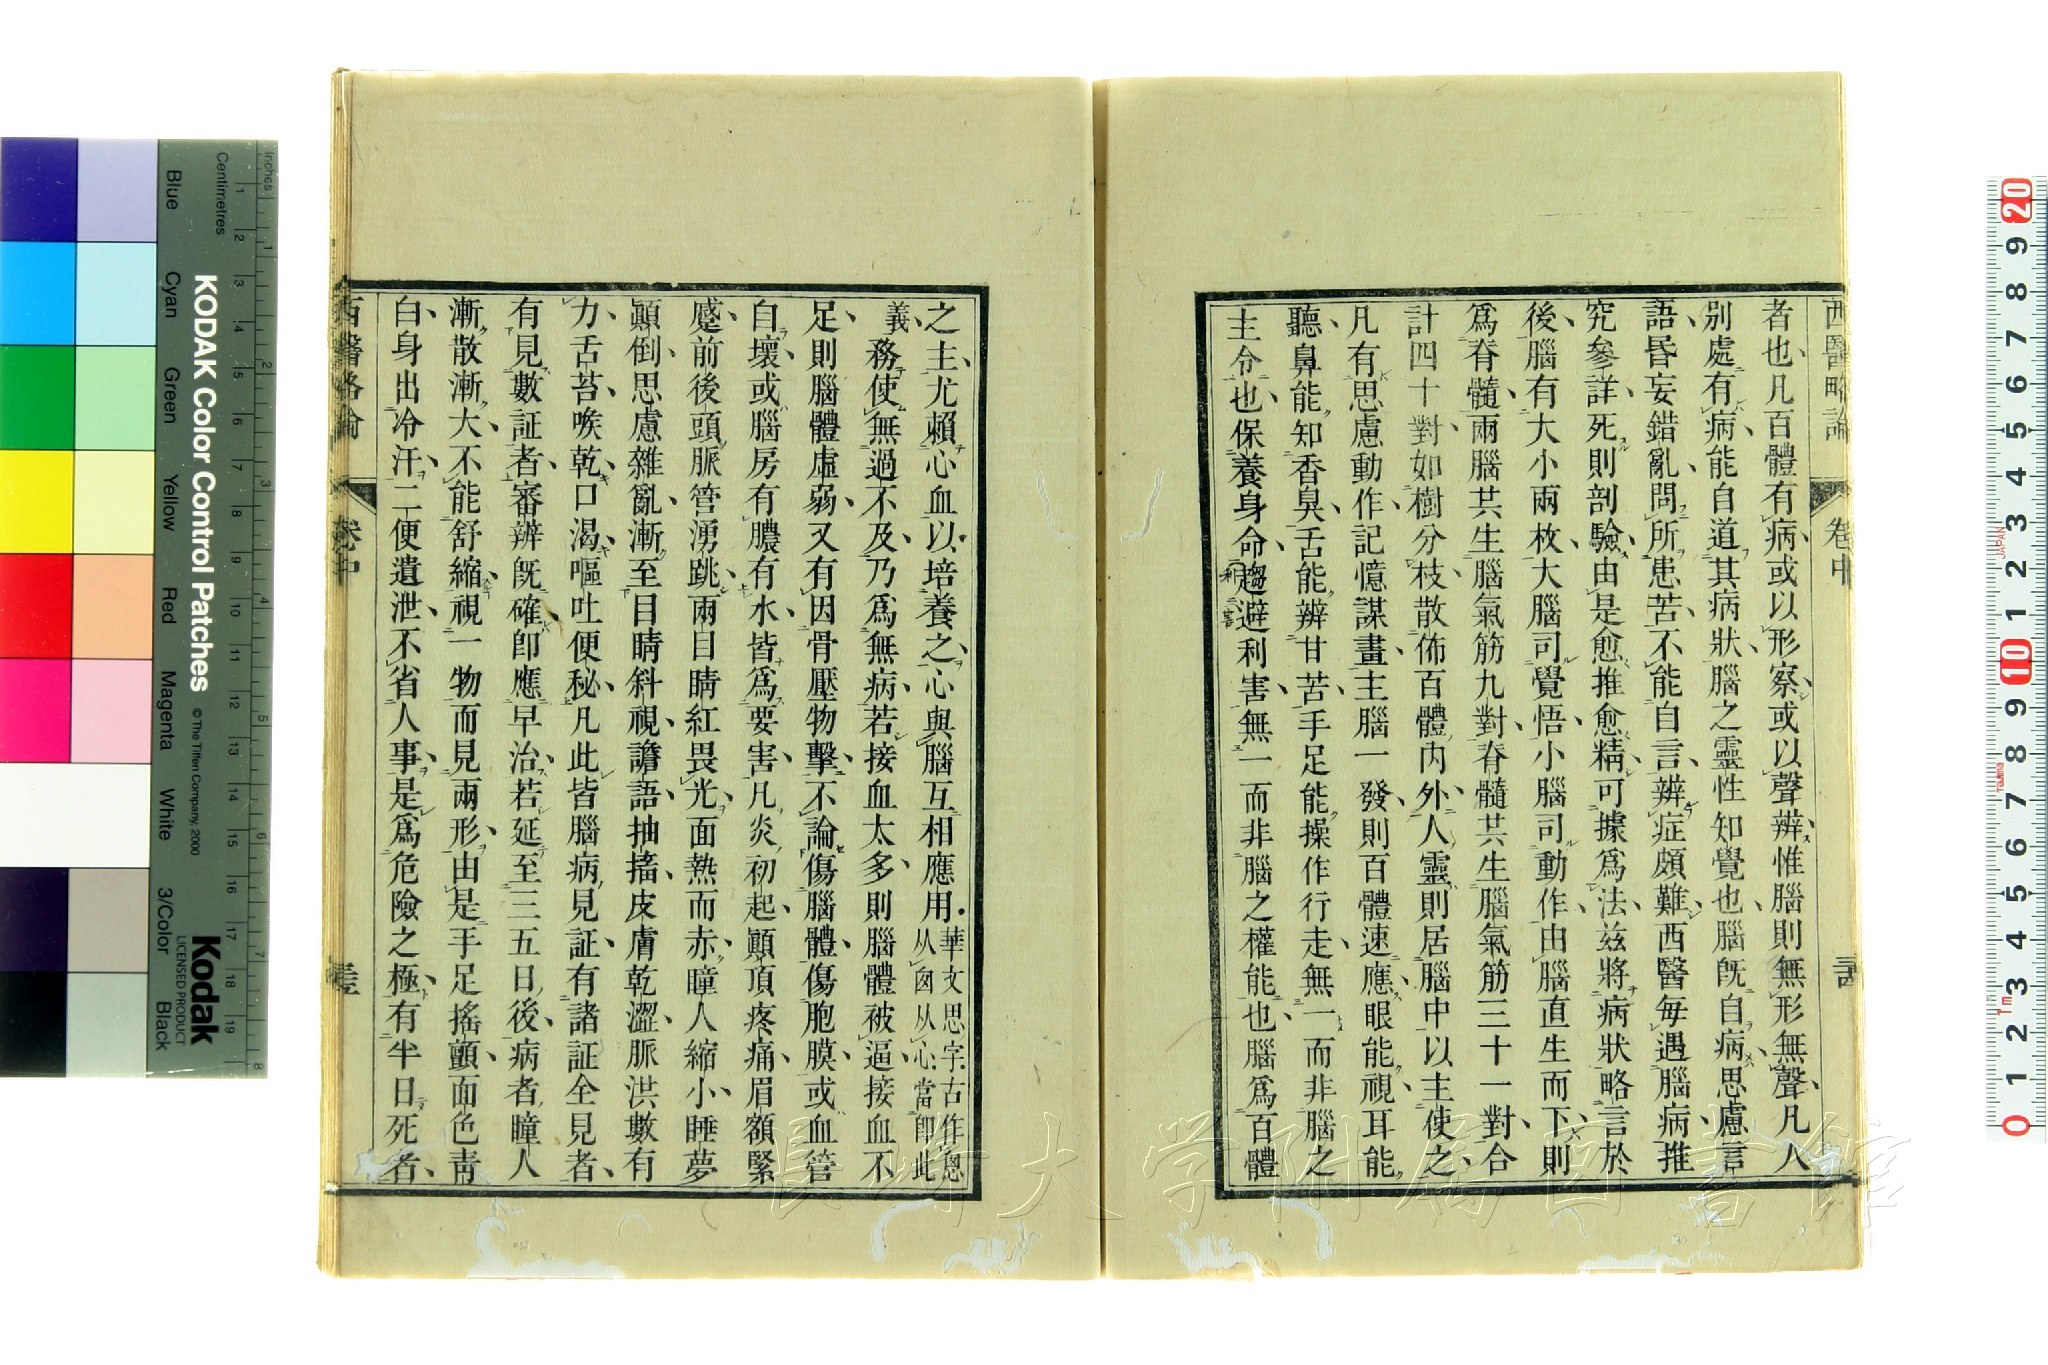 西醫略論
卷中
者也凡百體有病或以形察或以聲辨惟腦則無形無聲凡人
別處有病能自道其病狀腦之靈性知覺也腦旣自病思慮言
語昏妄錯亂問所患苦不能自言辨症頗難西醫每遇腦病推
究參詳死則剖驗由是愈推愈精可據爲法茲將病狀略言於
後腦有大小兩枚大腦司覺悟小腦司動作由腦直生而下則
爲脊髓兩腦共生腦氣筋九對脊髓共生腦氣筋三十一對合
計四十對如樹分枝散佈百體內外人靈則居腦中以主使之
凡有思慮動作記憶謀畫主腦一發則百體速應眼能視耳能
聽鼻能知香臭舌能辨甘苦手足能操作行走無一而非腦之
主令也保養身命趨避利害無一而非腦之權能也腦爲百體
之主尤賴心血以培養之心與腦互相應用華文思字古作恖
从囟从心當卽此
義務使無過不及乃爲無病若接血太多則腦體被逼接血不
足則腦體虛弱又有因骨壓物擊不論傷腦體傷胞膜或血管
自壞或腦房有膿有水皆爲要害凡炎初起顚頂疼痛眉額緊
蹙前後頭脈管湧跳兩目睛紅畏光面熱而赤瞳人縮小睡夢
顚倒思慮雜亂漸至目睛斜視譫語抽搐皮膚乾澀脈洪數有
力舌苔喉乾口渴嘔吐便秘凡此皆腦病見証有諸証全見者
有見數証者審辨旣確卽應早治若延至三五日後病者瞳人
漸散漸大不能舒縮視一物而見兩形由是手足搖顫面色靑
白身出冷汗二便遺泄不省人事是爲危險之極有半日死者
西醫略論
卷中
KODAK Color Control Patches
© The Tiffen Company, 2000
Kodak
LICENSED PRODUCT
Inches
Centimetres
Blue
Cyan
Green
Yellow
Red
Magenta
White
3/Color
Black
長崎大学附属図書館